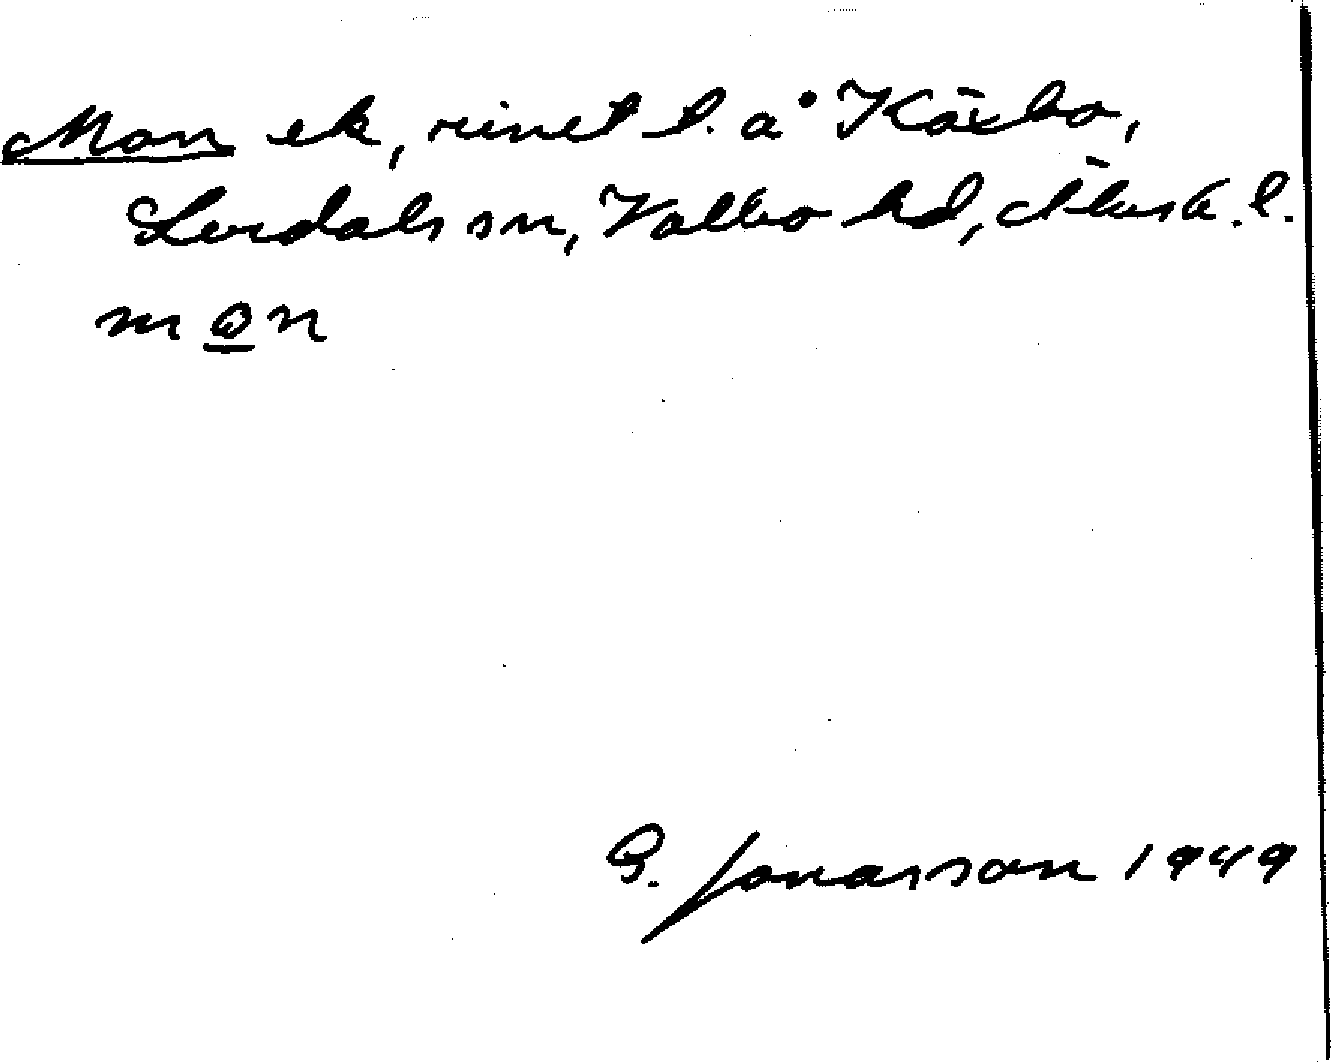 Mon ek, rivet l. å Käxbo,
Lerdals sn, Valbo hd, Älvsb. l.
mon
G. Jonasson 1949